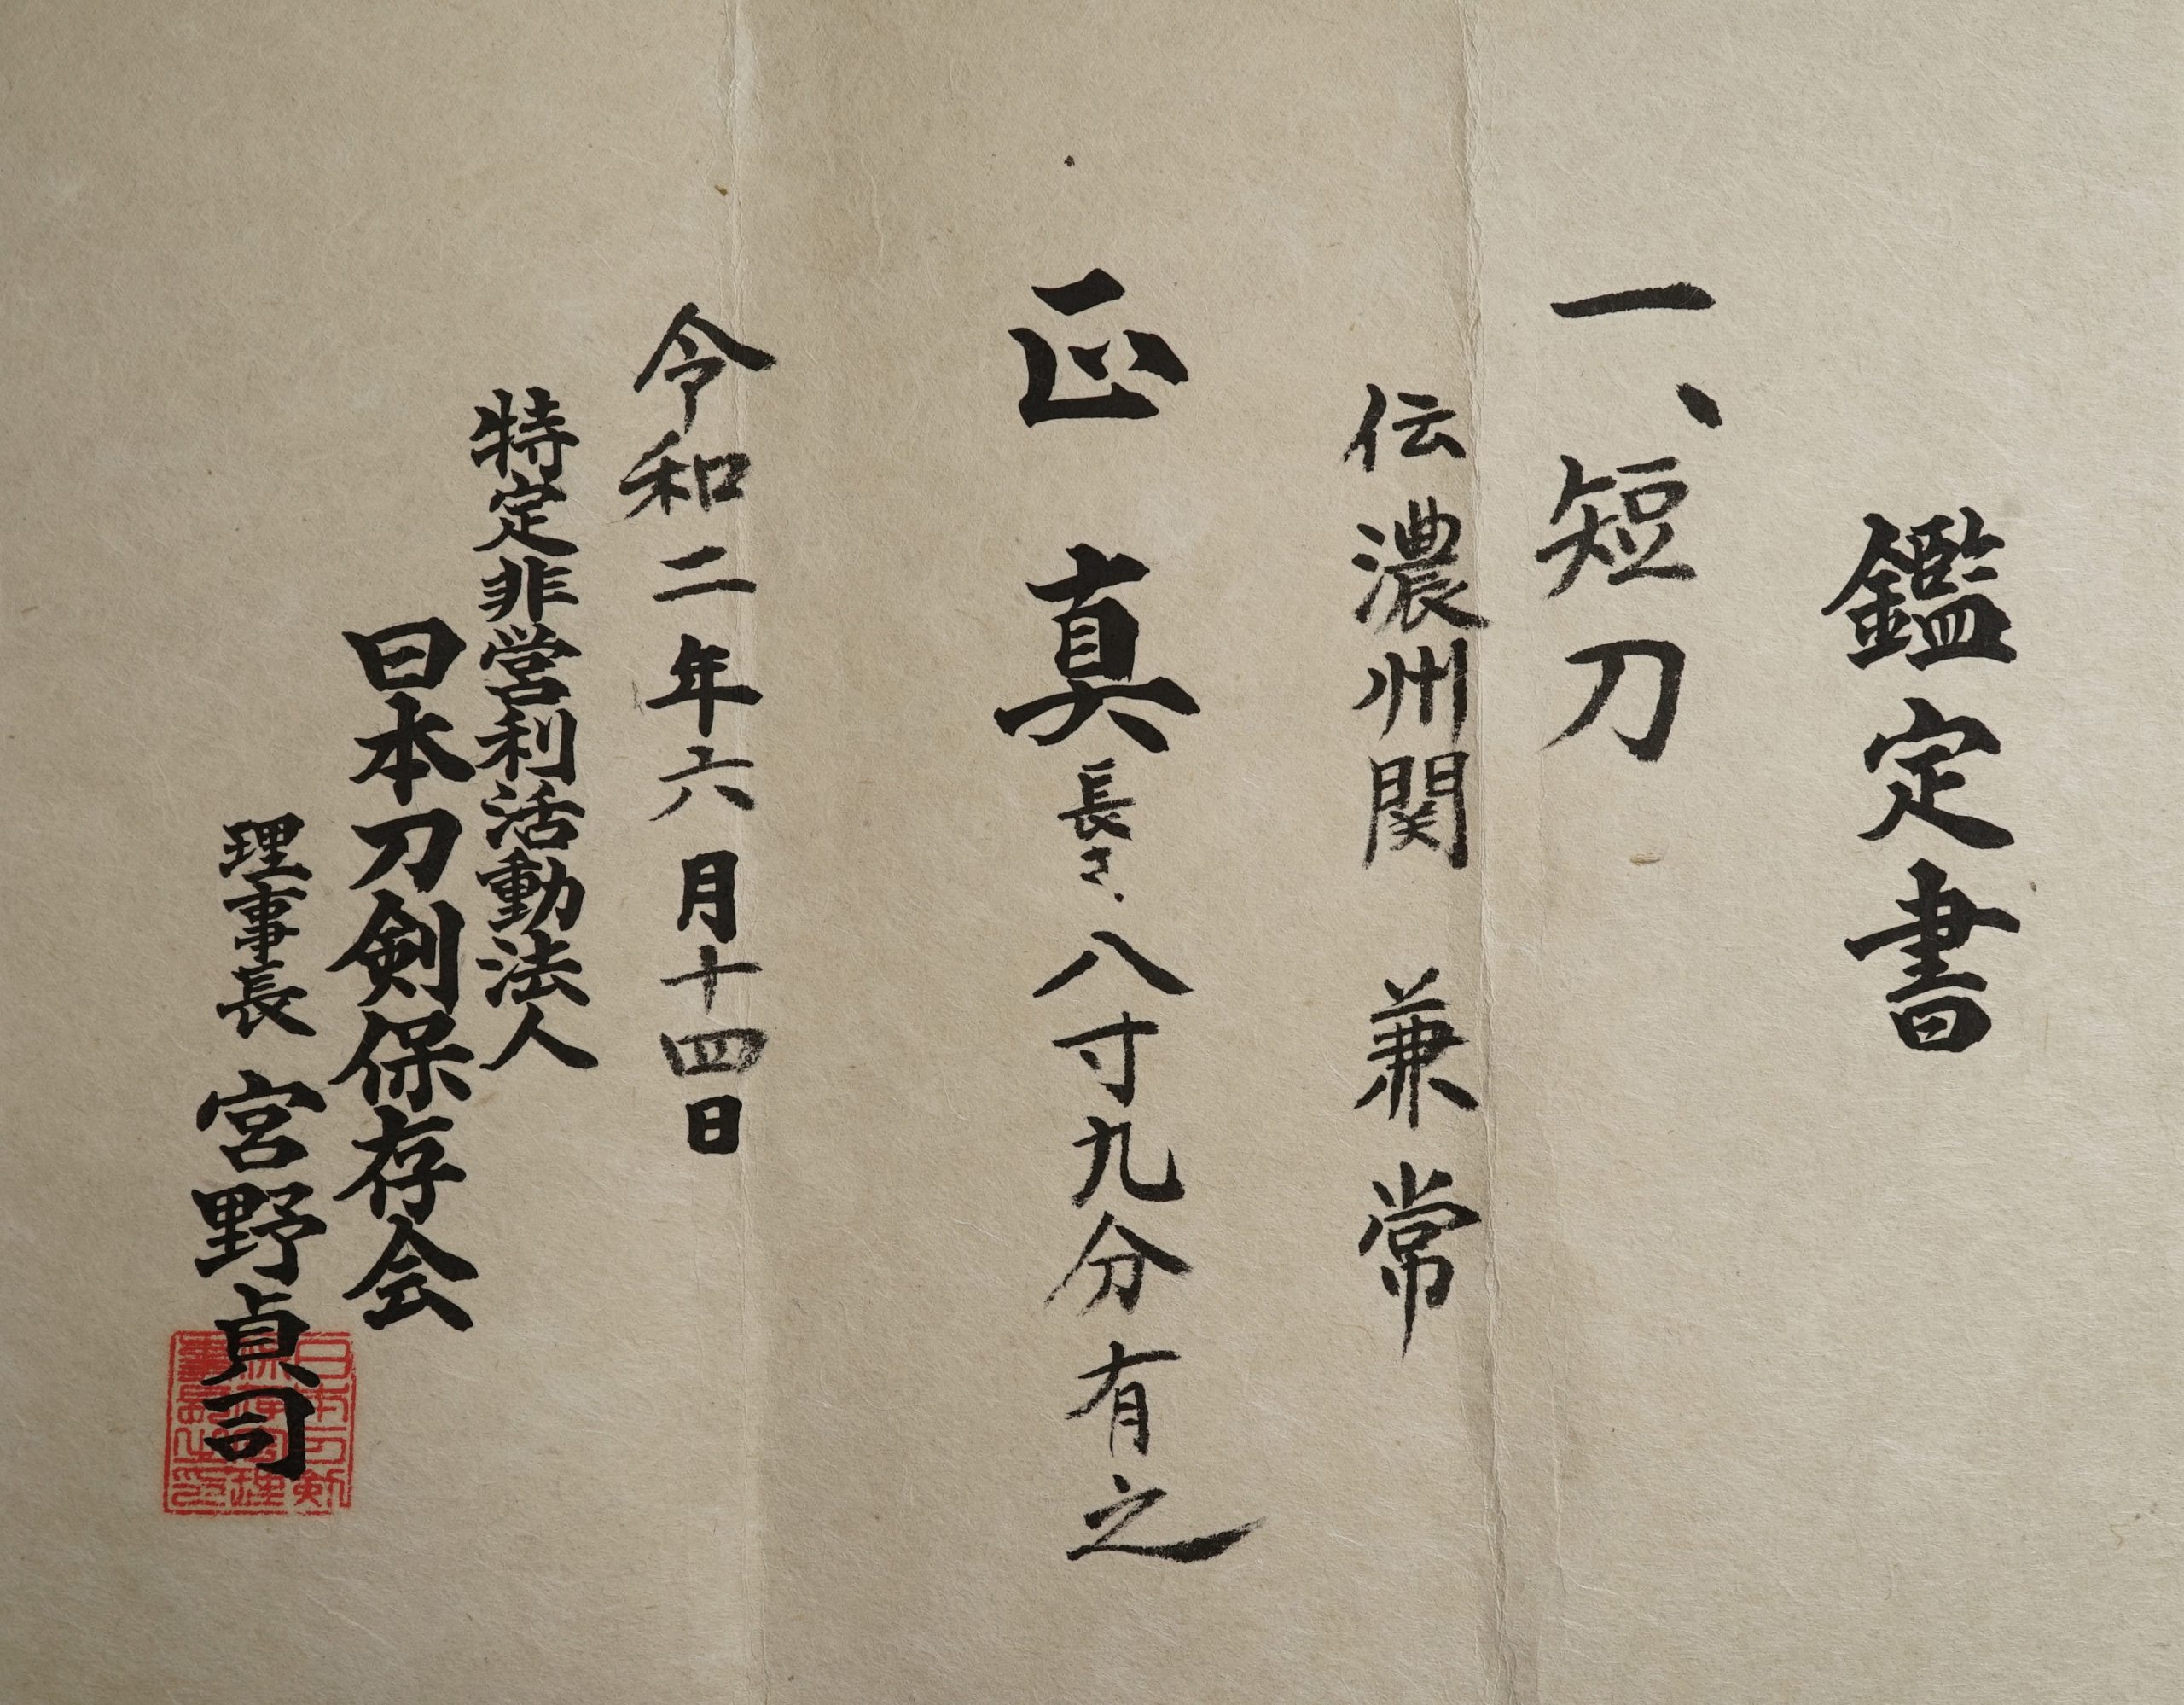 鑑定書
一、短刀
伝濃州関 兼常
正 真 長さ 八寸九分有之
令和二年六月十四日
特定非営利活動法人
日本刀剣保存会
理事長 宮野貞司
日本刀剣
保存会理
事長之印